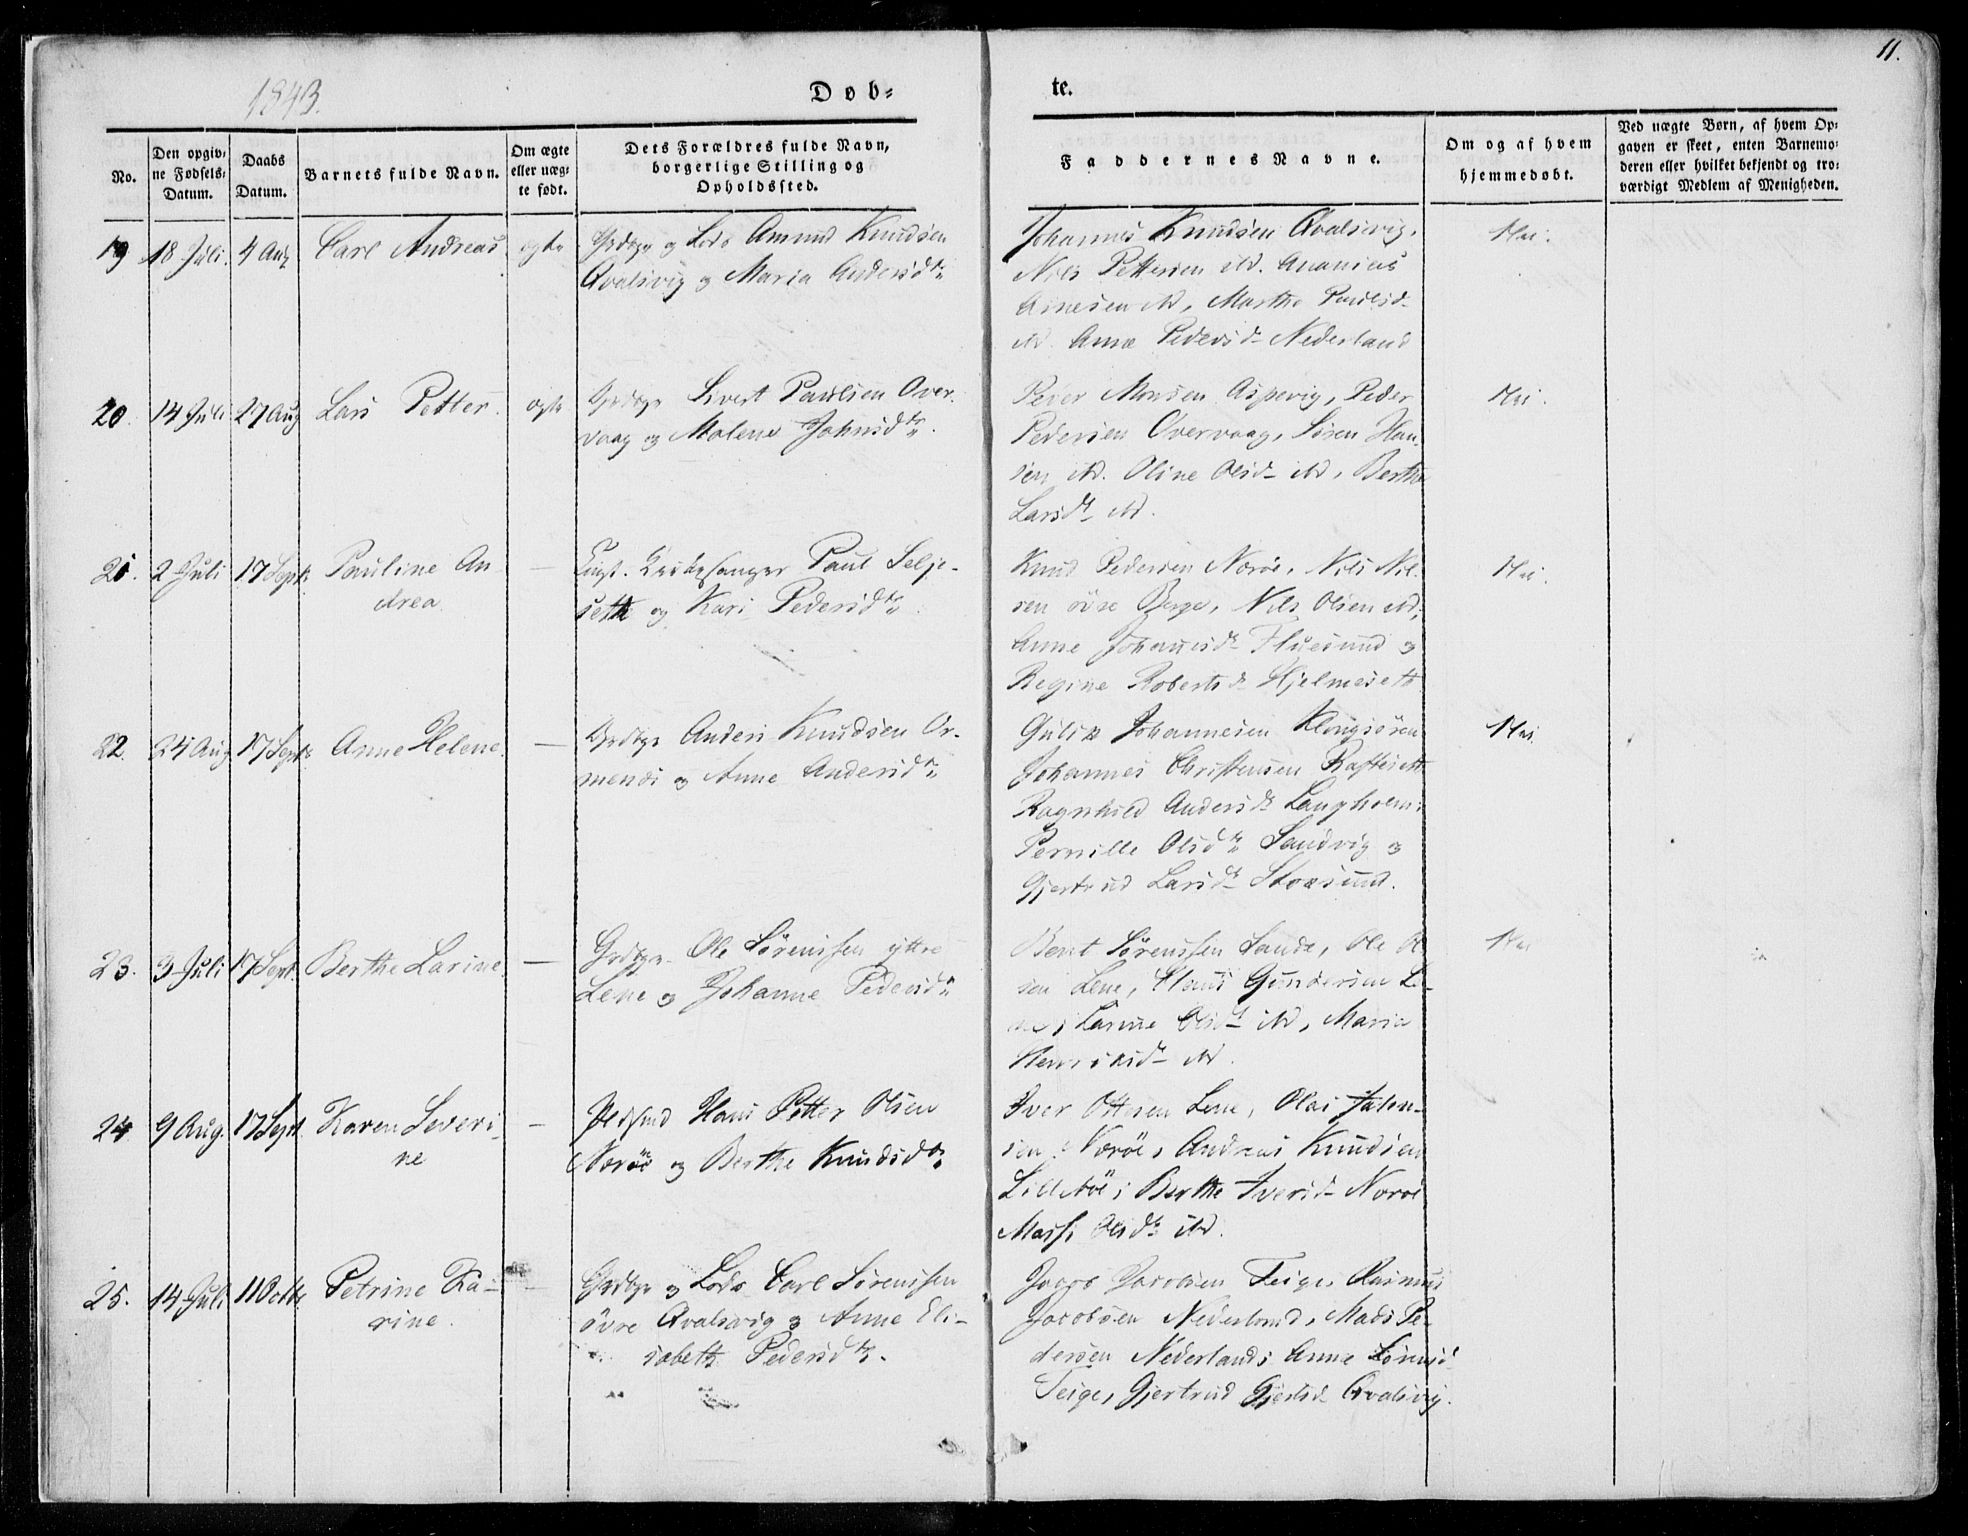 11.
1843.
Døb-
te.
No.
Den opgiv-
ne Fødsels-
Datum.
Daabs
Datum.
Barnets fulde Navn.
Om ægte
eller uæg-
te født.
Dets Forældres fulde Navn,
borgerlige Stilling og
Opholdssted.
Faddernes Navne.
Om og af hvem
hjemmedøbt.
Ved uægte Børn, af hvem Op-
gaven er skeet, enten Barnemo-
deren eller hvilket bekjendt og tro-
værdigt Medlem af Menigheden.
19 18 Juli 4 Aug Carl Andreas ægte
og Lods Amund Knudsen
Qvalsvig og Maria Andersdtr
Johannes Knudsen Qvalsvig,
Nils Pettersen ibd. Ananias
Arnesen ibd, Marthe Paulsd
ibd. Anne Pedersd Nederland
Nei.
20. 14 Juli 27 Aug Lars Petter. ægte
Sivert Paulsen Over-
vaag og Malene Johnsdtr.
Peder Monsen Aspevig, Peder
Pedersen Overvaag, Søren Han-
sen ibd. Oline Olsd ibd, Berthe
Larsdt ibd.
Nei.
21. 2 Juli 17 Sept. Pauline An
drea
—
Kirkesanger Paul Selje-
seth og Kari Pedersdtr.
Knud Pedersen Norøe, Nils Nil-
sen øvre Berge, Nils Olsen ibd,
Anne Johannesdt Fluesund og
Regine Robertsd Hjelmeseth
Nei.
22. 24 Aug 17 Sept. Anne Helene.
—
Anders Knudsen Or-
menæs og Anne Andersdtr
Gulik Johannesen
Johannes Christensen Raftesett
Ragnhild Andersdt Langholm,
Pernille Olsdtr Sandvig og
Gjertrud Larsdt Storesund.
Nei.
23. 3 Juli 17 Sept. Berthe Larine.
—
Ole Sørenssen yttre
Lene og Johanne Pedersdtr
Bent Sørenssen Sande, Ole Ol-
sen Lene, Claus Gundersen Le-
ne, Larine Olsdt ibd, Maria
Henriksdt ibd.
Nei
24. 9 Aug. 17 Sept. Karen Severi-
ne
—
Hans Petter Olsen
Norøe og Berthe Knudsdtr
Iver Ottesen Lene, Olai
sen Norøe, Andreas Knudsen
Berthe Iversd Norøe
Olsdt ibd.
25. 14 Juli 11 Octbr Petrine Ka-
rine.
—
og Lods Carl Sørenssen
øvre Qvalsvig og Anne Eli-
sabeth Pedersdtr.
Jacob Jacobsen Teige, Rasmus
Jacobsen Nederland, Mads Pe-
dersen Nederland, Anne Sørensd
Teige, Gjertrud Gjertsd Qvalsvig.